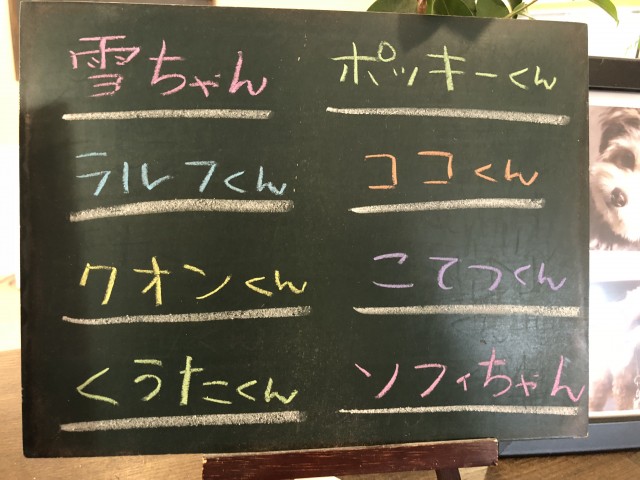 雪ちゃん
ポッキーくん
ラルフくん
ココくん
クオンくん
こてつくん
くうたくん
ソフィちゃん